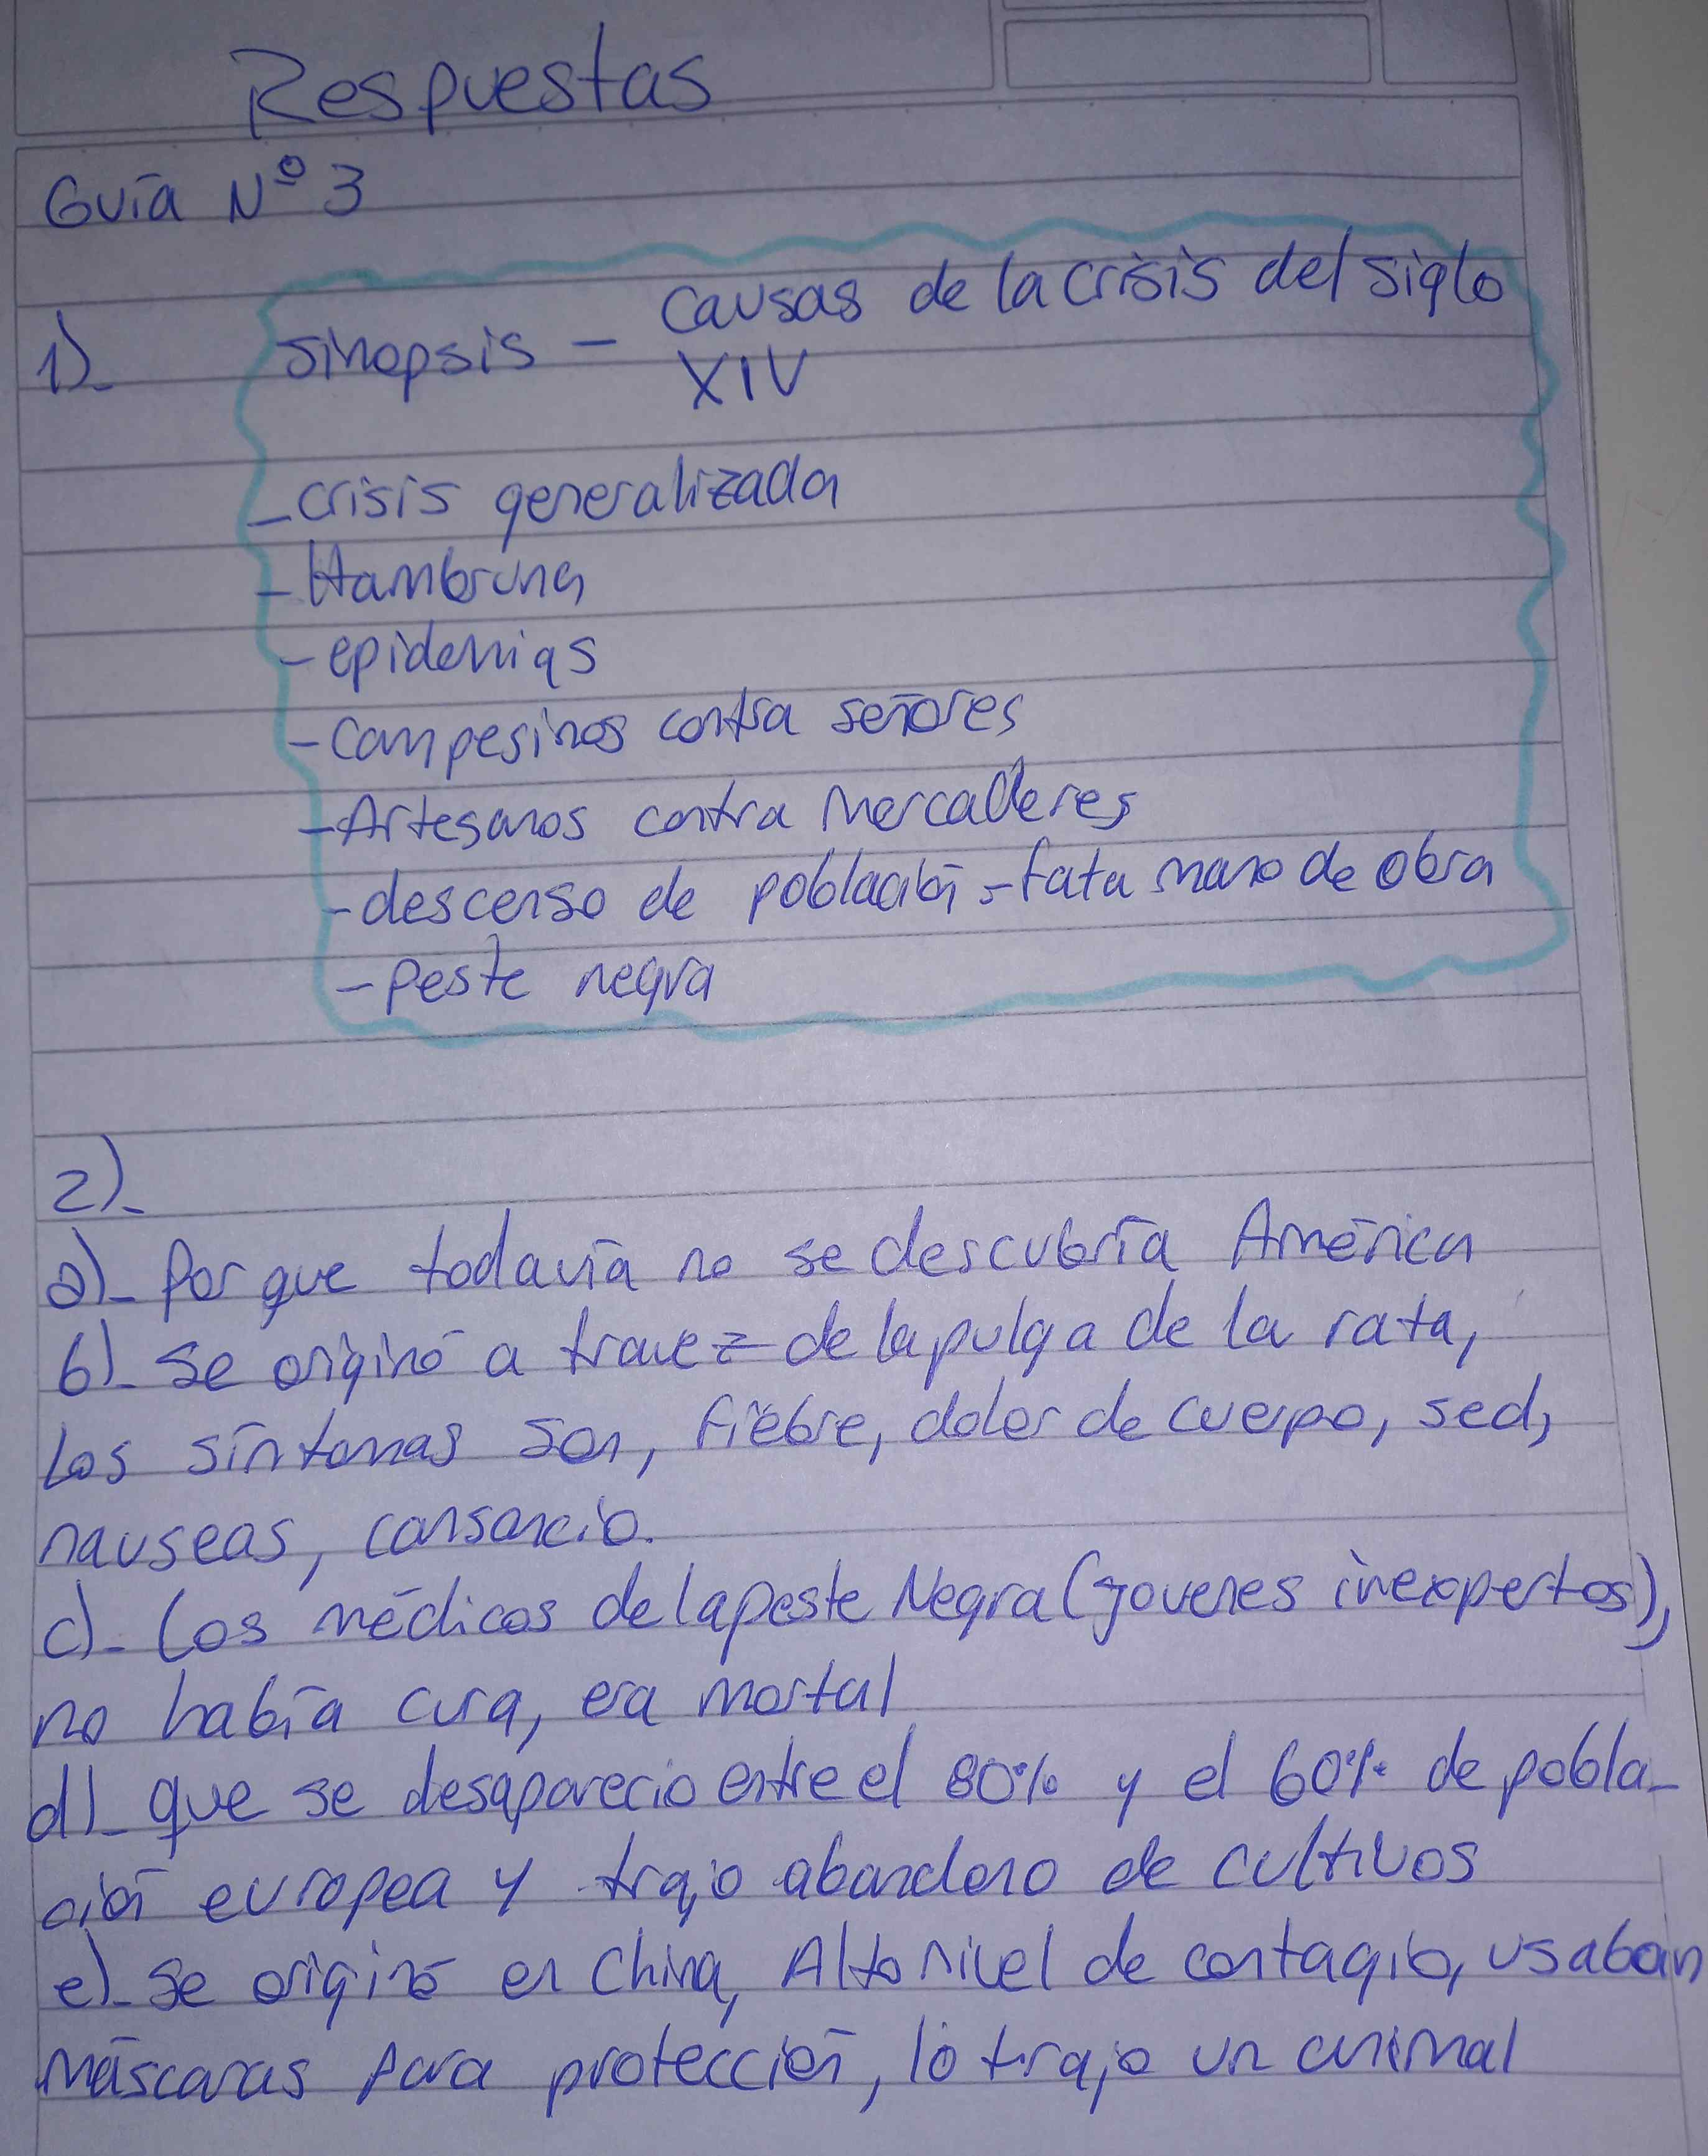 Respuestas
Guía Nº 3
1)- sinopsis - causas de la crisis del siglo
XIV
- crisis generalizada
- Hambruna
- epidemias
- campesinos contra señores
- Artesanos contra Mercaderes
- descenso de población - fata mano de obra
- peste negra
2)-
a)- Por que todavía no se descubría América
b)- se originó a travez de la pulga de la rata,
los síntomas son, fiebre, dolor de cuerpo, sed,
nauseas, cansancio.
c)- Los médicos de la peste Negra (jovenes inexpertos),
no había cura, era mortal
d)- que se desaparecio entre el 80% y el 60% de pobla-
ción europea y trajo abandono de cultivos
e)- se originó en China, Alto nivel de contagio, usaban
máscaras para protección, lo trajo un animal